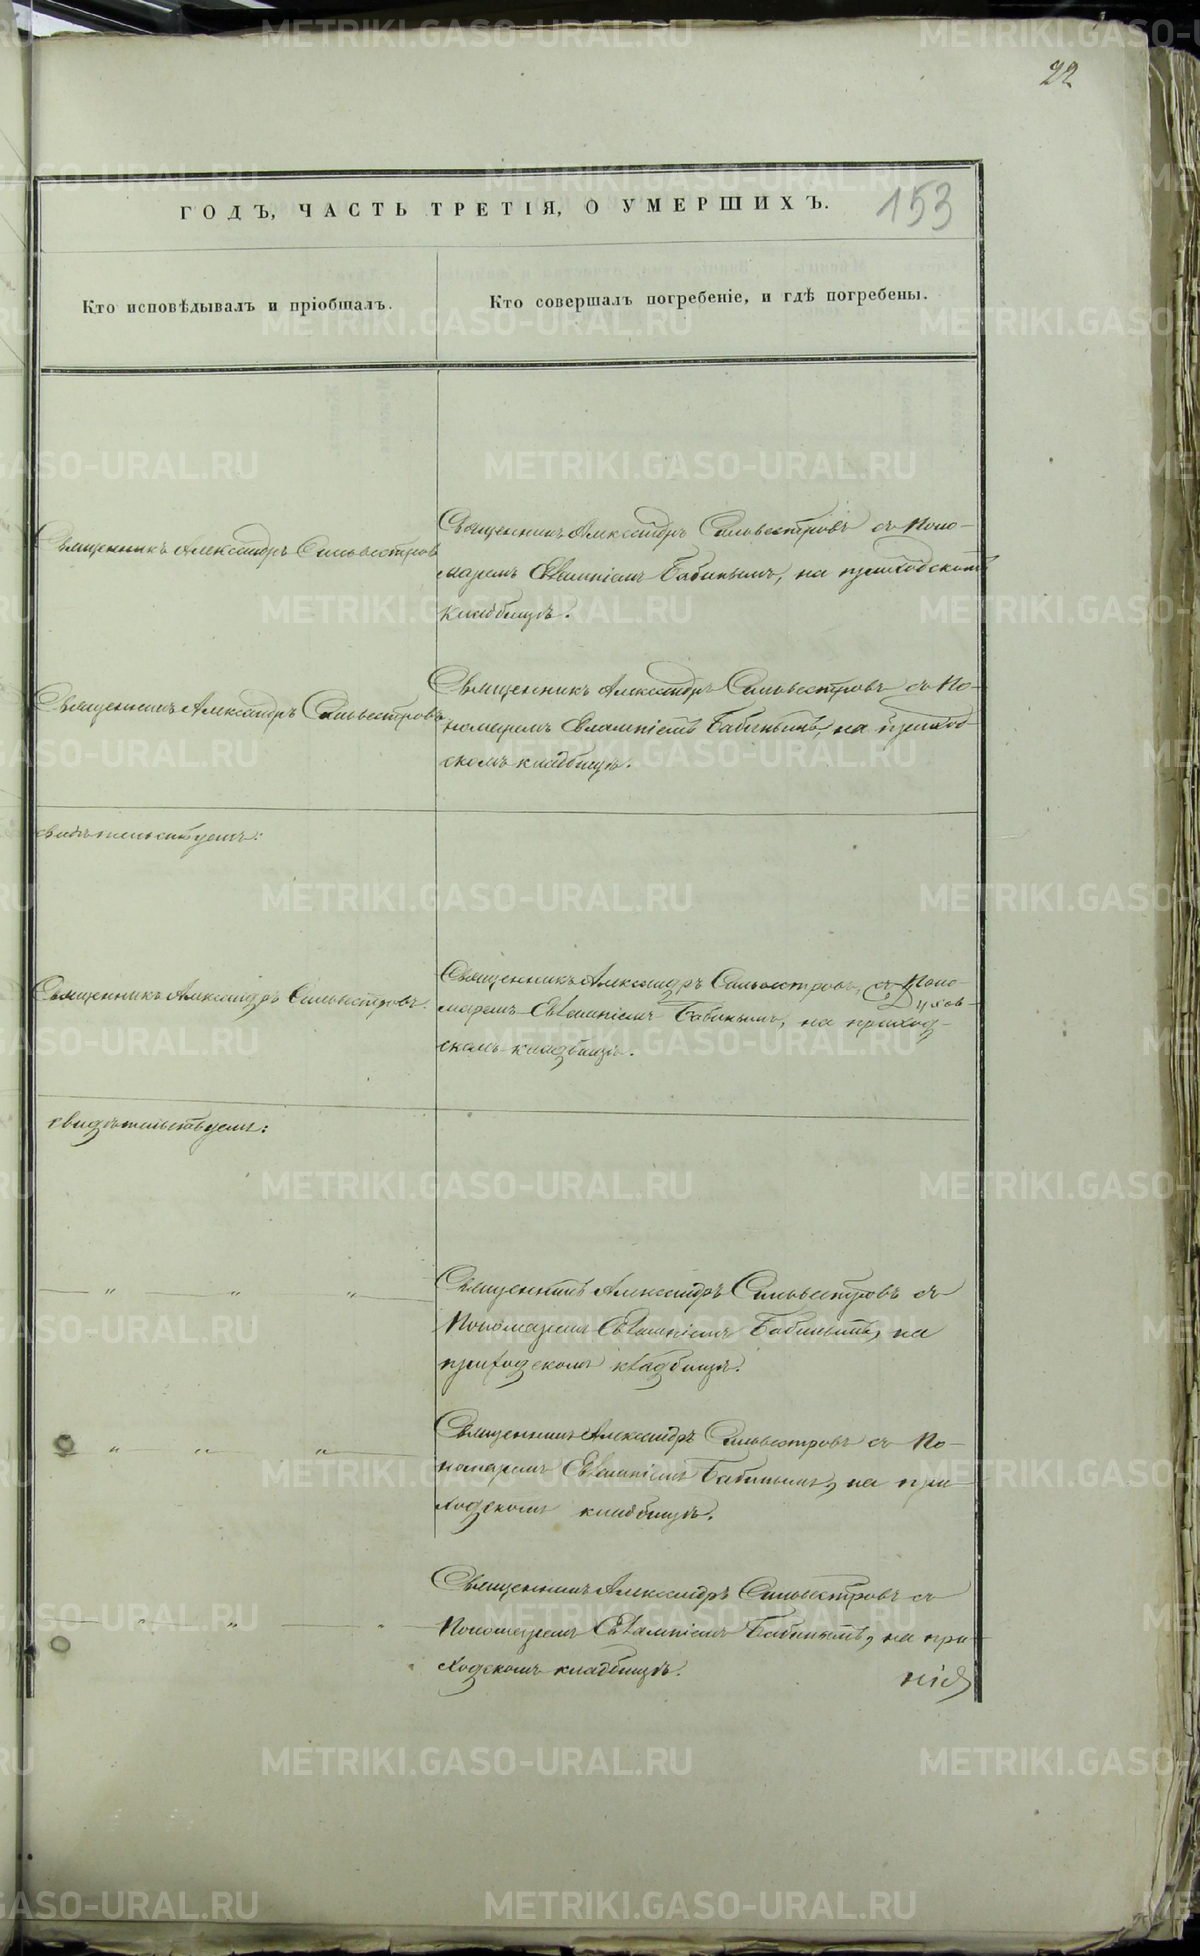 22
ГОДЪ, ЧАСТЬ ТРЕТІЯ, О УМЕРШИХЪ.
153
Кто исповѣдывалъ и пріобщалъ.
Кто совершалъ погребеніе, и гдѣ погребены.
Священникъ Александръ Сильвестровъ
Священникъ Александръ Сильвестровъ съ Поно-
маремъ Евлампіемъ Бабинымъ, на приходскомъ
кладбищѣ.
Священникъ Александръ Сильвестровъ
Священникъ Александръ Сильвестровъ съ По-
номаремъ Евлампіемъ Бабинымъ, на приход-
скомъ кладбищѣ.
свидѣтельствуемъ:
Священникъ Александръ Сильвестровъ.
Священникъ Александръ Сильвестровъ, съ Поно-
маремъ Евлампіемъ Бабинымъ, на приход-
скомъ кладбищѣ.
свидѣтельствуемъ:
— " — " — " —
Священникъ Александръ Сильвестровъ съ
Пономаремъ Евлампіемъ Бабинымъ, на
приходскомъ кладбищѣ.
— " — " — " —
Священникъ Александръ Сильвестровъ съ По-
номаремъ Евлампіемъ Бабинымъ, на при-
ходскомъ кладбищѣ.
— " — " — " —
Священникъ Александръ Сильвестровъ съ
Пономаремъ Евлампіемъ Бабинымъ, на при-
ходскомъ кладбищѣ.
METRIKI.GASO-URAL.RU